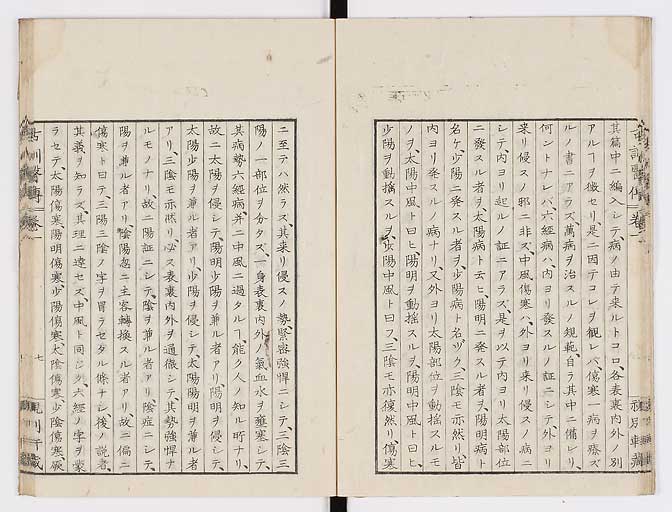 其篇中ニ編入シテ病ノ由テ来ルトコロ、各表裏内外ノ別
アルヿヲ徴セリ是ニ因テコレヲ観レバ傷寒一病ヲ療ズ
ルノ書ニアラズ、萬病ヲ治スルノ規範、自ラ其中ニ備レリ、
何ントナレバ、六經病ハ、内ヨリ發スルノ証ニシテ外ヨリ
来リ侵スノ邪ニ非ズ、中風傷寒ハ、外ヨリ来リ侵スノ病ニ
シテ、内ヨリ起ルノ証ニアラズ、是ヲ以テ内ヨリ太陽部位
ニ發スル者ヲ、太陽病ト云ヒ、陽明ニ発スル者ヲ、陽明病ト
名ケ、少陽ニ発スル者ヲ、少陽病ト名ヅク、三陰モ亦然リ皆
内ヨリ発スルノ病ナリ、又外ヨリ太陽部位ヲ動揺スルモ
ノヲ、太陽中風ト曰ヒ、陽明ヲ動揺スルヲ、陽明中風ト曰ヒ、
少陽ヲ動揺スルヲ、少陽中風ト曰フ、三陰モ亦復然リ、傷寒
ニ至テハ然ラズ、其来リ侵スノ勢、緊容強悍ニシテ、三陰三
陽ノ一部位ヲ分タズ、一身表裏内外ノ氣血水ヲ壅塞シテ、
其病勢六經病并ニ中風ニ過タルヿ、能ク人ノ知ル所ナリ、
故ニ太陽ヲ侵シテ、陽明少陽ヲ兼ル者アリ、陽明ヲ侵シテ、
太陽少陽ヲ兼ル者アリ、少陽ヲ侵シテ、太陽陽明ヲ兼ル者
アリ、三陰モ亦然リ、必ズ表裏内外ヲ通徹シテ、其勢強悍ナ
ルモノナリ、故ニ陽証ニシテ、陰ヲ兼ル者アリ、陰症ニシテ、
陽ヲ兼ル者アリ、陰陽忽ニ主客轉換スル者アリ、故ニ偏ニ
傷寒ト曰テ、三陽三陰ノ字ヲ冒ラセタル條ナシ、後ノ説者、
其義ヲ知ラズ、其理ニ達セズ、中風ト同シク、六經ノ字ヲ蒙
ラセテ、太陽傷寒、陽明傷寒、少陽傷寒、太陰傷寒、少陰傷寒、厥
七